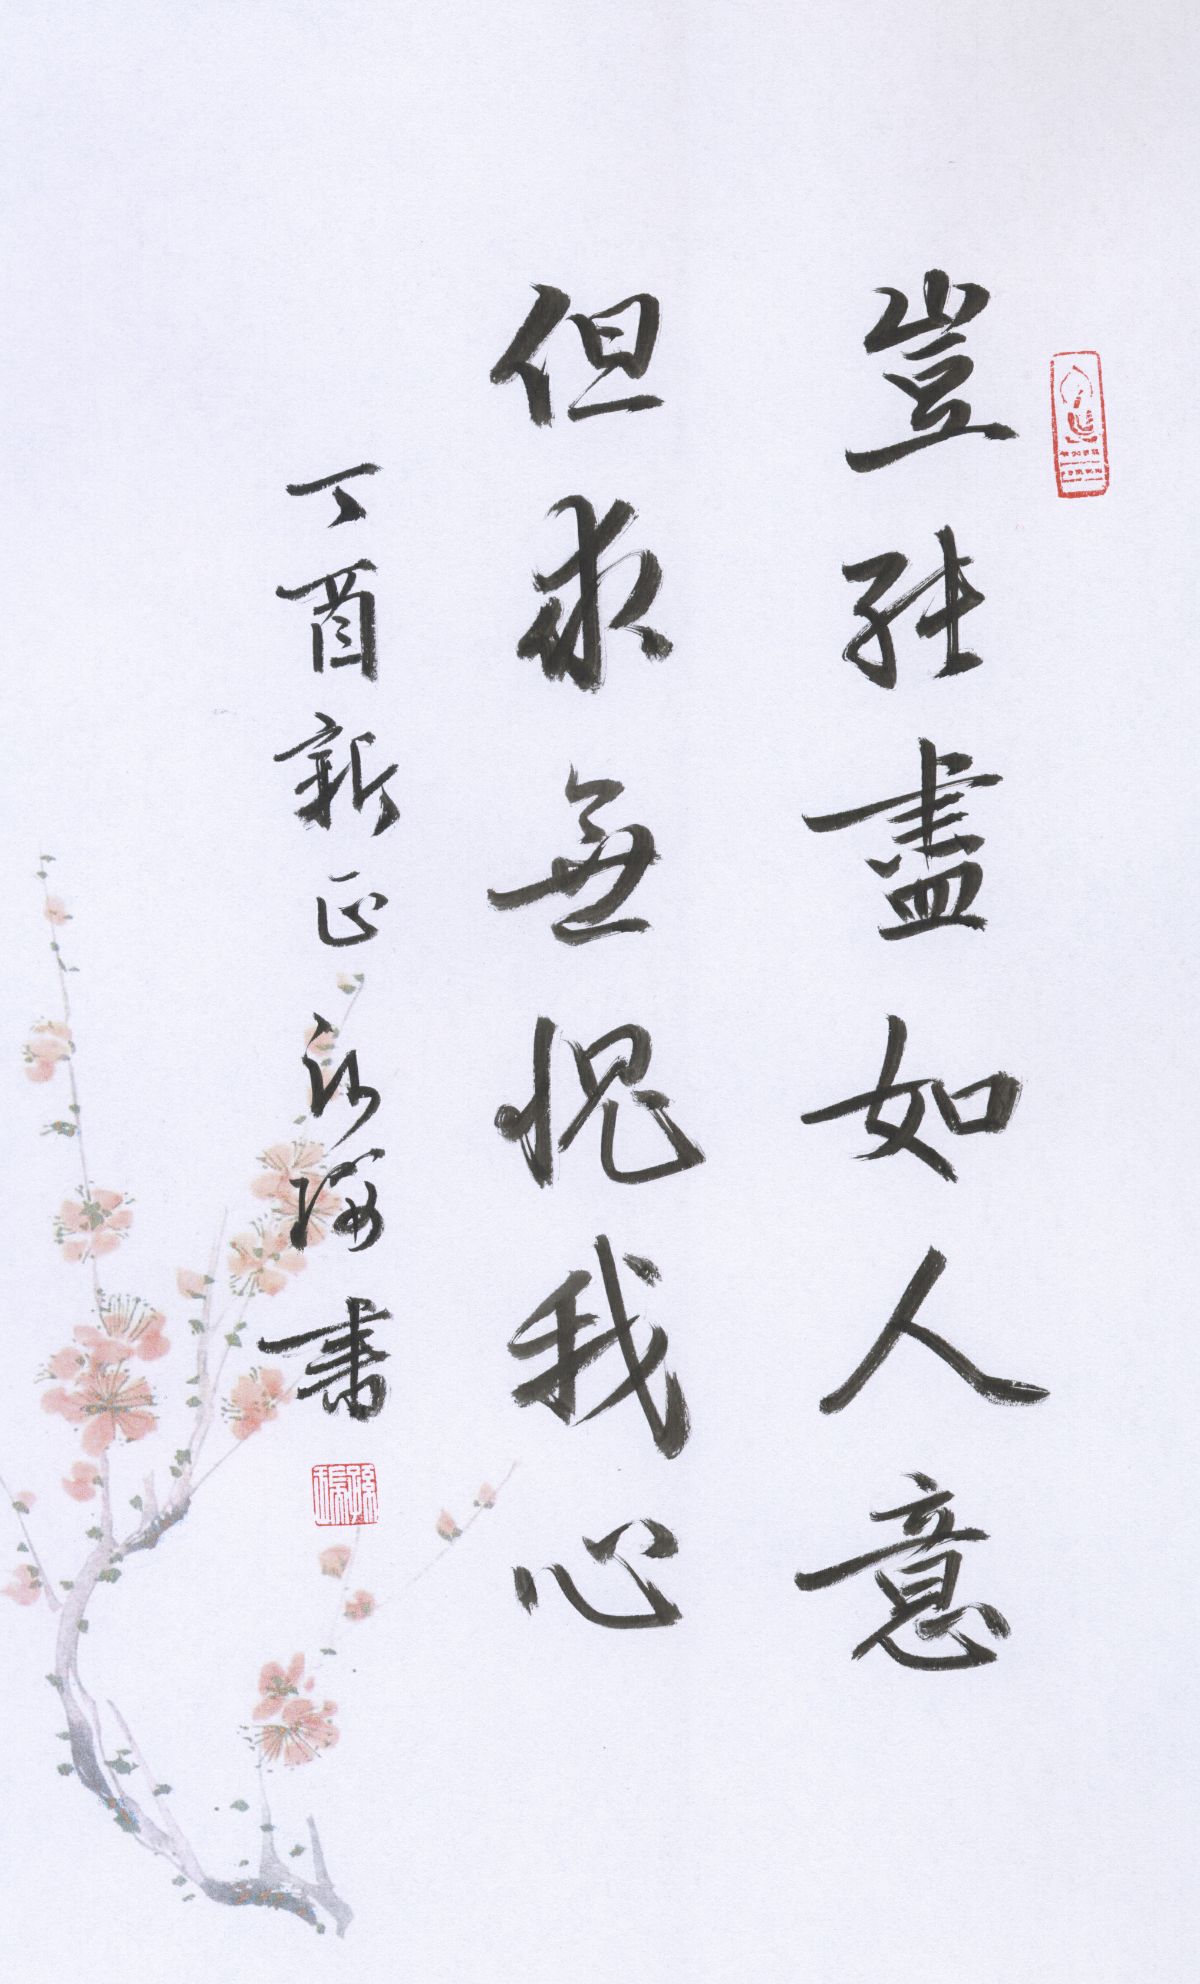 豈能盡如人意
但求無愧我心
丁酉新正
書